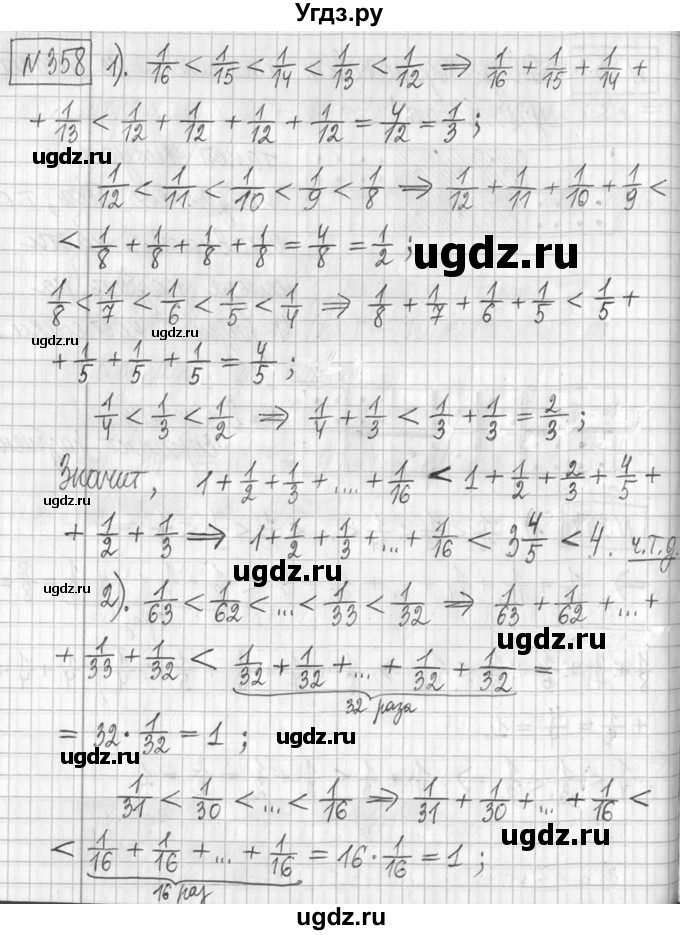 Угдз.ру
№358 1). 1/16 < 1/15 < 1/14 < 1/13 < 1/12 ⇒ 1/16 + 1/15 + 1/14 +
+ 1/13 < 1/12 + 1/12 + 1/12 + 1/12 = 4/12 = 1/3 ;
ugdz.ru
1/12 < 1/11 < 1/10 < 1/9 < 1/8 ⇒ 1/12 + 1/11 + 1/10 + 1/9 <
ugdz.ru
< 1/8 + 1/8 + 1/8 + 1/8 = 4/8 = 1/2 ;
ugdz.ru
1/8 < 1/7 < 1/6 < 1/5 < 1/4 ⇒ 1/8 + 1/7 + 1/6 + 1/5 < 1/5 +
ugdz.ru ugdz.ru
+ 1/5 + 1/5 + 1/5 = 4/5 ;
1/4 < 1/3 < 1/2 ⇒ 1/4 + 1/3 < 1/3 + 1/3 = 2/3 ;
Значит, 1 + 1/2 + 1/3 + .... + 1/16 < 1 + 1/2 + 2/3 + 4/5 +
ugdz.ru
+ 1/2 + 1/3 ⇒ 1 + 1/2 + 1/3 + ... + 1/16 < 3 4/5 < 4. ч.т.д.
ugdz.ru ugdz.ru
2). 1/63 < 1/62 < ... < 1/33 < 1/32 ⇒ 1/63 + 1/62 + ... +
ugdz.ru
+ 1/33 + 1/32 < 1/32 + 1/32 + ... + 1/32 + 1/32 =
32 раза
= 32 · 1/32 = 1 ;
ugdz.ru ugdz.ru
1/31 < 1/30 < ... < 1/16 ⇒ 1/31 + 1/30 + ... + 1/16 <
ugdz.ru
< 1/16 + 1/16 + ... + 1/16 = 16 · 1/16 = 1 ;
16 раз
ugdz.ru
ugdz.ru